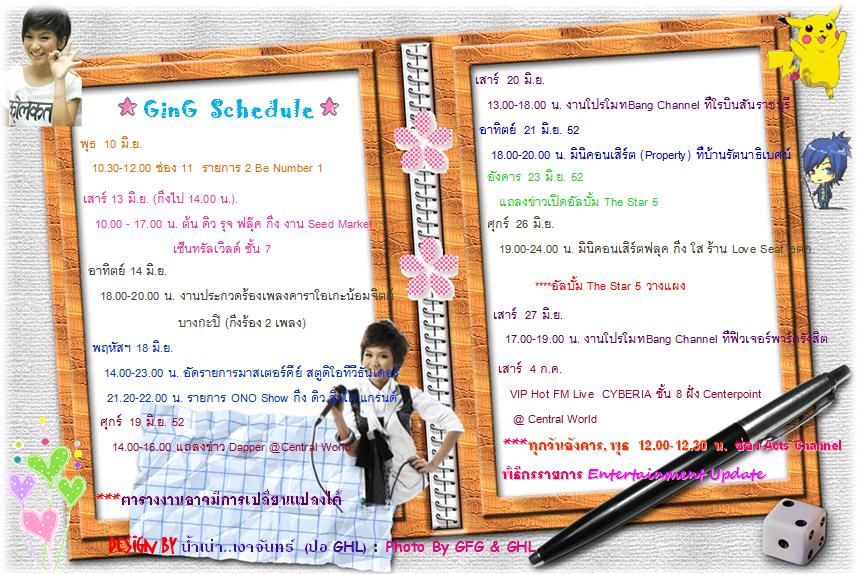 GinG Schedule
พุธ 10 มิ.ย.
10.30-12.00 ช่อง 11 รายการ 2 Be Number 1
เสาร์ 13 มิ.ย. (กิ่งไป 14.00 น.).
10.00 - 17.00 น. ต้น ดิว รุจ ฟลุ๊ค กิ่ง งาน Seed Market
เซ็นทรัลเวิลด์ ชั้น 7
อาทิตย์ 14 มิ.ย.
18.00-20.00 น. งานประกวดร้องเพลงคาราโอเกะน้อมจิตต์
บางกะปิ (กิ่งร้อง 2 เพลง)
พฤหัสฯ 18 มิ.ย.
14.00-23.00 น. อัดรายการมาสเตอร์คีย์ สตูดิโอทีวีธันเดอร์
21.20-22.00 น. รายการ ONO Show กิ่ง ดิว แกรนด์
ศุกร์ 19 มิ.ย. 52
14.00-16.00 แถลงข่าว Dapper @Central World
***ตารางงานอาจมีการเปลี่ยนแปลงได้
เสาร์ 20 มิ.ย.
13.00-18.00 น. งานโปรโมทBang Channel ที่โรบินสันราชบุรี
อาทิตย์ 21 มิ.ย. 52
18.00-20.00 น. มินิคอนเสิร์ต (Property) ที่บ้านรัตนาธิเบศน์
อังคาร 23 มิ.ย. 52
แถลงข่าวเปิดอัลบั้ม The Star 5
ศุกร์ 26 มิ.ย.
19.00-24.00 น. มินิคอนเสิร์ตฟลุค กิ่ง ใส ร้าน Love Seat
****อัลบั้ม The Star 5 วางแผง
เสาร์ 27 มิ.ย.
17.00-19.00 น. งานโปรโมทBang Channel ที่ฟิวเจอร์พาร์ครังสิต
เสาร์ 4 ก.ค.
VIP Hot FM Live CYBERIA ชั้น 8 ฝั่ง Centerpoint
@ Central World
***ทุกวันอังคาร, พุธ 12.00-12.30 น. ช่อง Acts Channel
พิธีกรรายการ Entertainment Update
DESIGN BY น้ำเน่า..เงาจันทร์ (ปอ GHL) : Photo By GFG & GHL